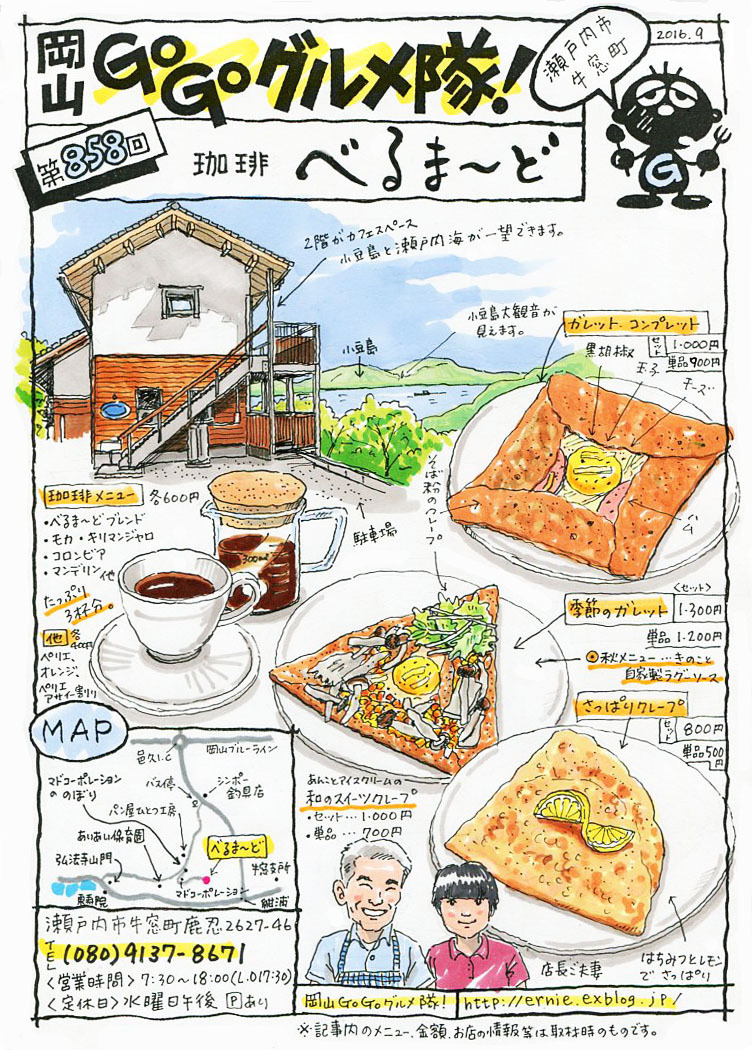 岡山 GOGOグルメ隊!
瀬戸内市
牛窓町
2016.9
第858回
珈琲 べるま〜ど
G
2階がカフェスペース
小豆島と瀬戸内海が一望できます。
小豆島大観音が
見えます。
小豆島
ガレット・コンプレット
セット 1.000円
単品 900円
黒胡椒
玉子
チーズ
ハム
そば粉のクレープ
駐車場
珈琲メニュー 各600円
・べるま〜どブレンド
・モカ・キリマンジャロ
・コロンビア
・マンデリン 他
たっぷり
3杯分。
300ml
他 各400円
ペリエ、
オレンジ、
ペリエ
アサイー割り
〈セット〉
季節のガレット 1.300円
単品 1.200円
秋メニュー…きのこと
自家製ラグーソース
さっぱりクレープ
セット 800円
単品 500円
はちみつとレモン
で さっぱり
あんことアイスクリームの
和のスイーツクレープ
・セット…1.000円
・単品…700円
店長ご夫妻
MAP
邑久I.C
岡山ブルーライン
マドコーポレーション
ののぼり
バス停
シンポー
釣具店
パン屋ひとつ工房
あいあい保育園
べるま〜ど
弘法寺山門
牛窓支所
東寿院
マドコーポレーション
紺浦
瀬戸内市牛窓町鹿忍2627-46
TEL (080)9137-8671
〈営業時間〉7:30〜18:00(L.O17:30)
〈定休日〉水曜日午後 Pあり
岡山GOGOグルメ隊! http://ernie.exblog.jp/
※記事内のメニュー、金額、お店の情報等は取材時のものです。